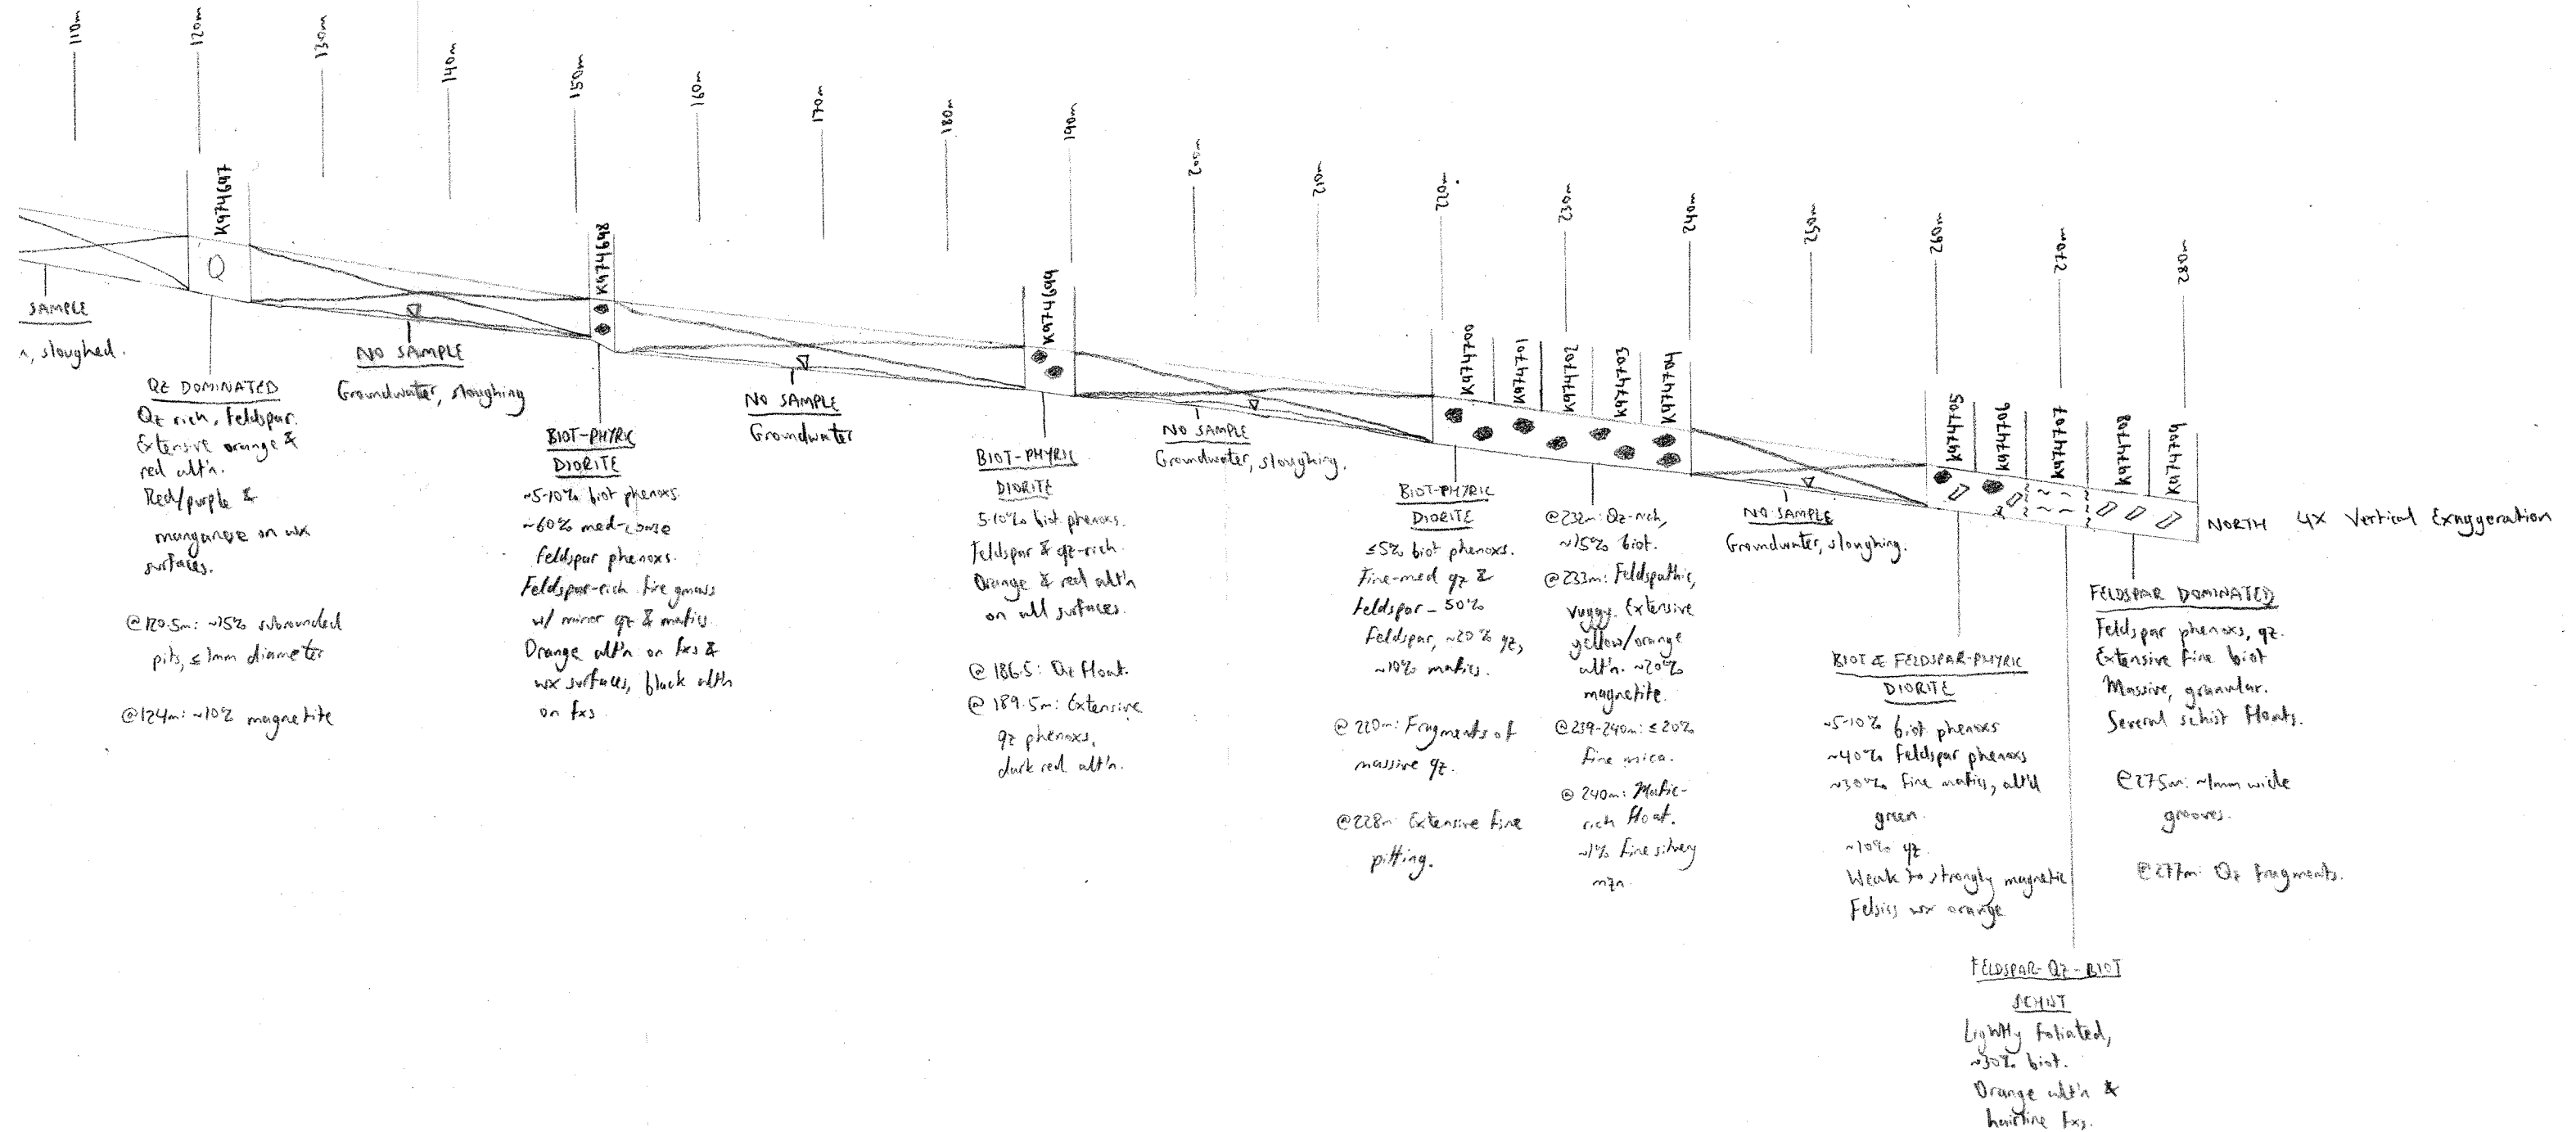 110m
120m
130m
140m
150m
160m
170m
180m
190m
200m
210m
220m
230m
240m
250m
260m
270m
280m
K974697
K974698
K974699
K974700
K974701
K974702
K974703
K974704
K974705
K974706
K974707
K974708
K974709
Q
NORTH 4x Vertical Exaggeration
SAMPLE
sloughed.
QZ DOMINATED
Qz rich, Feldspar.
Extensive orange &
red alt'n.
Red/purple &
manganese on wx
surfaces.
@120.5m: ~15% subrounded
pits, ≤1mm diameter
@124m: ~10% magnetite
NO SAMPLE
Groundwater, sloughing
BIOT-PHYRIC
DIORITE
~5-10% biot phenoxs.
~60% med-coarse
feldspar phenoxs.
Feldspar-rich fine gmass
w/ minor qz & mafics.
Orange alt'n on fxs &
wx surfaces, black alt'n
on fxs
NO SAMPLE
Groundwater
BIOT-PHYRIC
DIORITE
5-10% biot phenoxs.
Feldspar & qz-rich.
Orange & red alt'n
on all surfaces.
@ 186.5: Qz float.
@ 189.5m: Extensive
qz phenoxs,
dark red alt'n.
NO SAMPLE
Groundwater, sloughing.
BIOT-PHYRIC
DIORITE
≤5% biot phenoxs.
Fine-med qz &
feldspar - 50%
feldspar, ~20% qz,
~10% mafics.
@ 220m: Fragments of
massive qz.
@228m: Extensive fine
pitting.
@232m: Qz-rich,
~15% biot.
@233m: Feldspathic,
vuggy. Extensive
yellow/orange
alt'n. ~20%
magnetite.
@239-240m: ≤20%
fine mica.
@ 240m: Mafic-
rich float.
~1% fine silvery
mzn.
NO SAMPLE
Groundwater, sloughing.
BIOT & FELDSPAR-PHYRIC
DIORITE
~5-10% biot phenoxs
~40% feldspar phenoxs
~30% fine mafics, alt'd
green
~10% qz
Weak to strongly magnetic
Felsics wx orange
FELDSPAR-QZ-BIOT
SCHIST
Lightly foliated,
~30% biot.
Orange alt'n &
hairline fxs.
FELDSPAR DOMINATED
Feldspar phenoxs, qz.
Extensive fine biot
Massive, granular.
Several schist floats.
@275m: ~1mm wide
grooves.
@277m: Qz fragments.